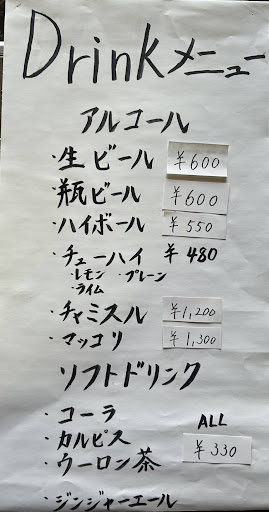 Drinkメニュー
アルコール
・生ビール ¥600
・瓶ビール ¥600
・ハイボール ¥550
・チューハイ ¥480
・レモン ・プレーン
・ライム
・チャミスル ¥1,200
・マッコリ ¥1,300
ソフトドリンク
・コーラ ALL
・カルピス ¥330
・ウーロン茶
・ジンジャーエール